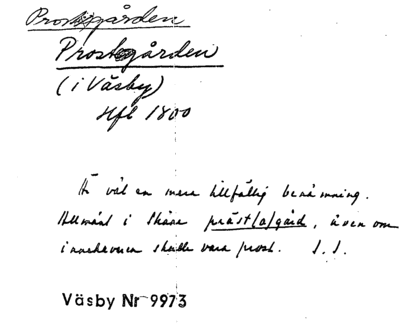 Prostgården
Prostgården
(i Väsby)
Hfl 1800
Är väl en mera tillfällig benämning.
Allmänt i Skåne präst(a)gård, även om
innehavaren skulle vara prost. I. I.
Väsby Nr 9973